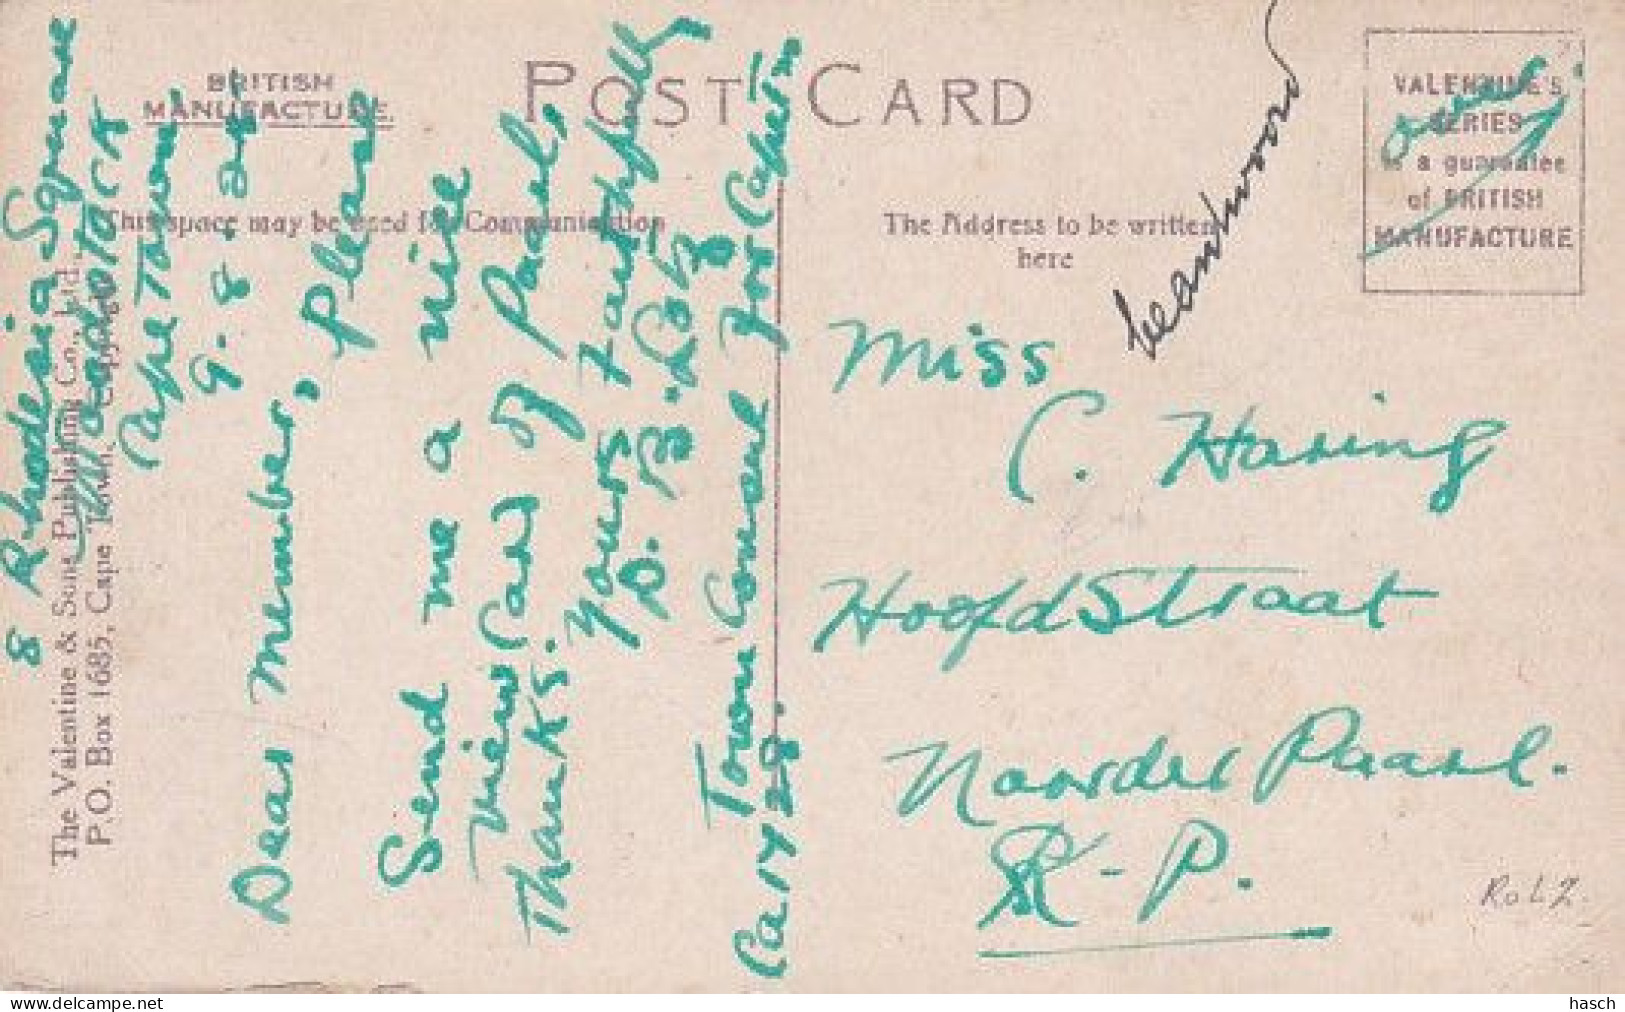 BRITISH
MANUFACTURE.
POST CARD
VALENTINE'S
SERIES
is a guarantee
of BRITISH
MANUFACTURE
This space may be used for Communication
The Address to be written
here
The Valentine & Sons Publishing Co., Ltd.,
P.O. Box 1685, Cape Town. Copyright
8 Rhodesia Square
Woodstock
Cape Town
9.8.
Dear Member, Please
Send me a nice
View Card of Paarl,
Thanks.
Yours Faithfully
D. B.
Town Consul for Capetn
Ca 1729.
beantwoord
Miss
C. Haring
Hoofd Straat
Noorder Paarl.
K-P.
over
RoLZ.
hasch